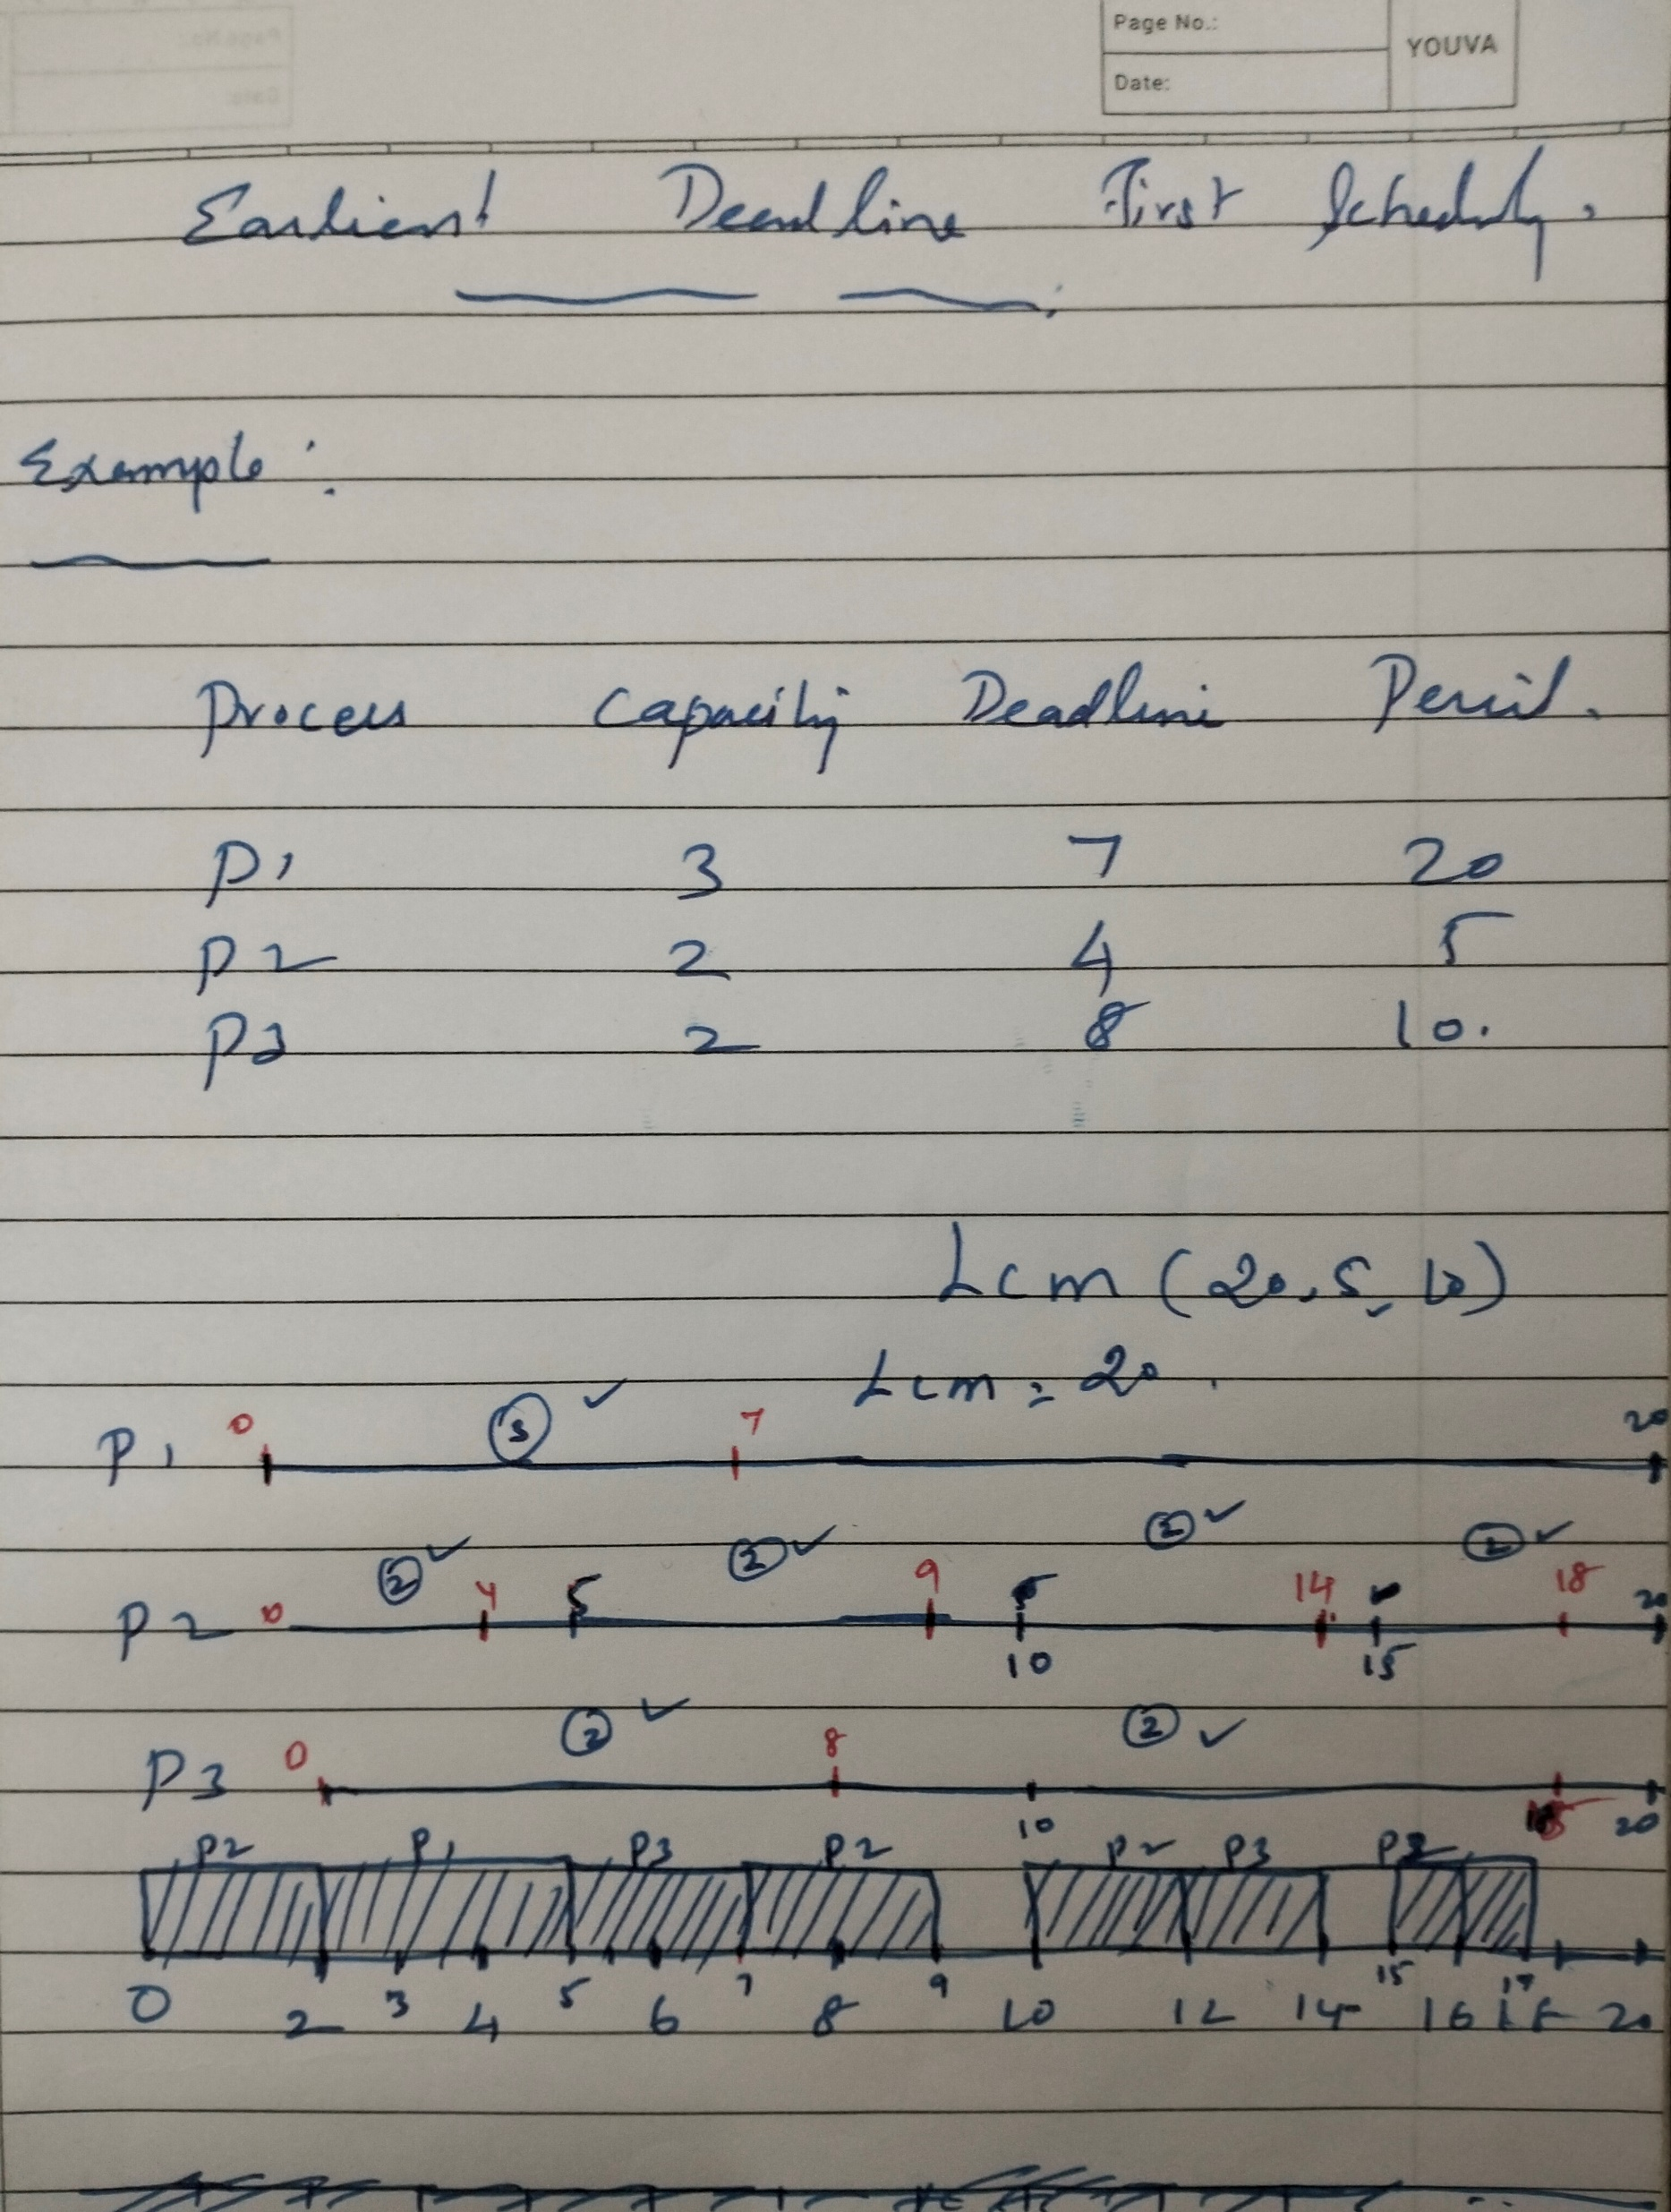 Page No.:
YOUVA
Date:
Earliest Deadline First Schedulg.
Example:
Process Capacity Deadline Period.
P1 3 7 20
P2 2 4 5
P3 2 8 10.
Lcm (20, 5, 10)
Lcm = 20.
P1 0 3 7 20
P2 0 2 4 5 2 9 10 2 14 15 2 18 20
P3 0 2 8 10 2 18 20
P2 P1 P3 P2 P2 P3 P2
0 2 3 4 5 6 7 8 9 10 12 14 15 16 17 18 20